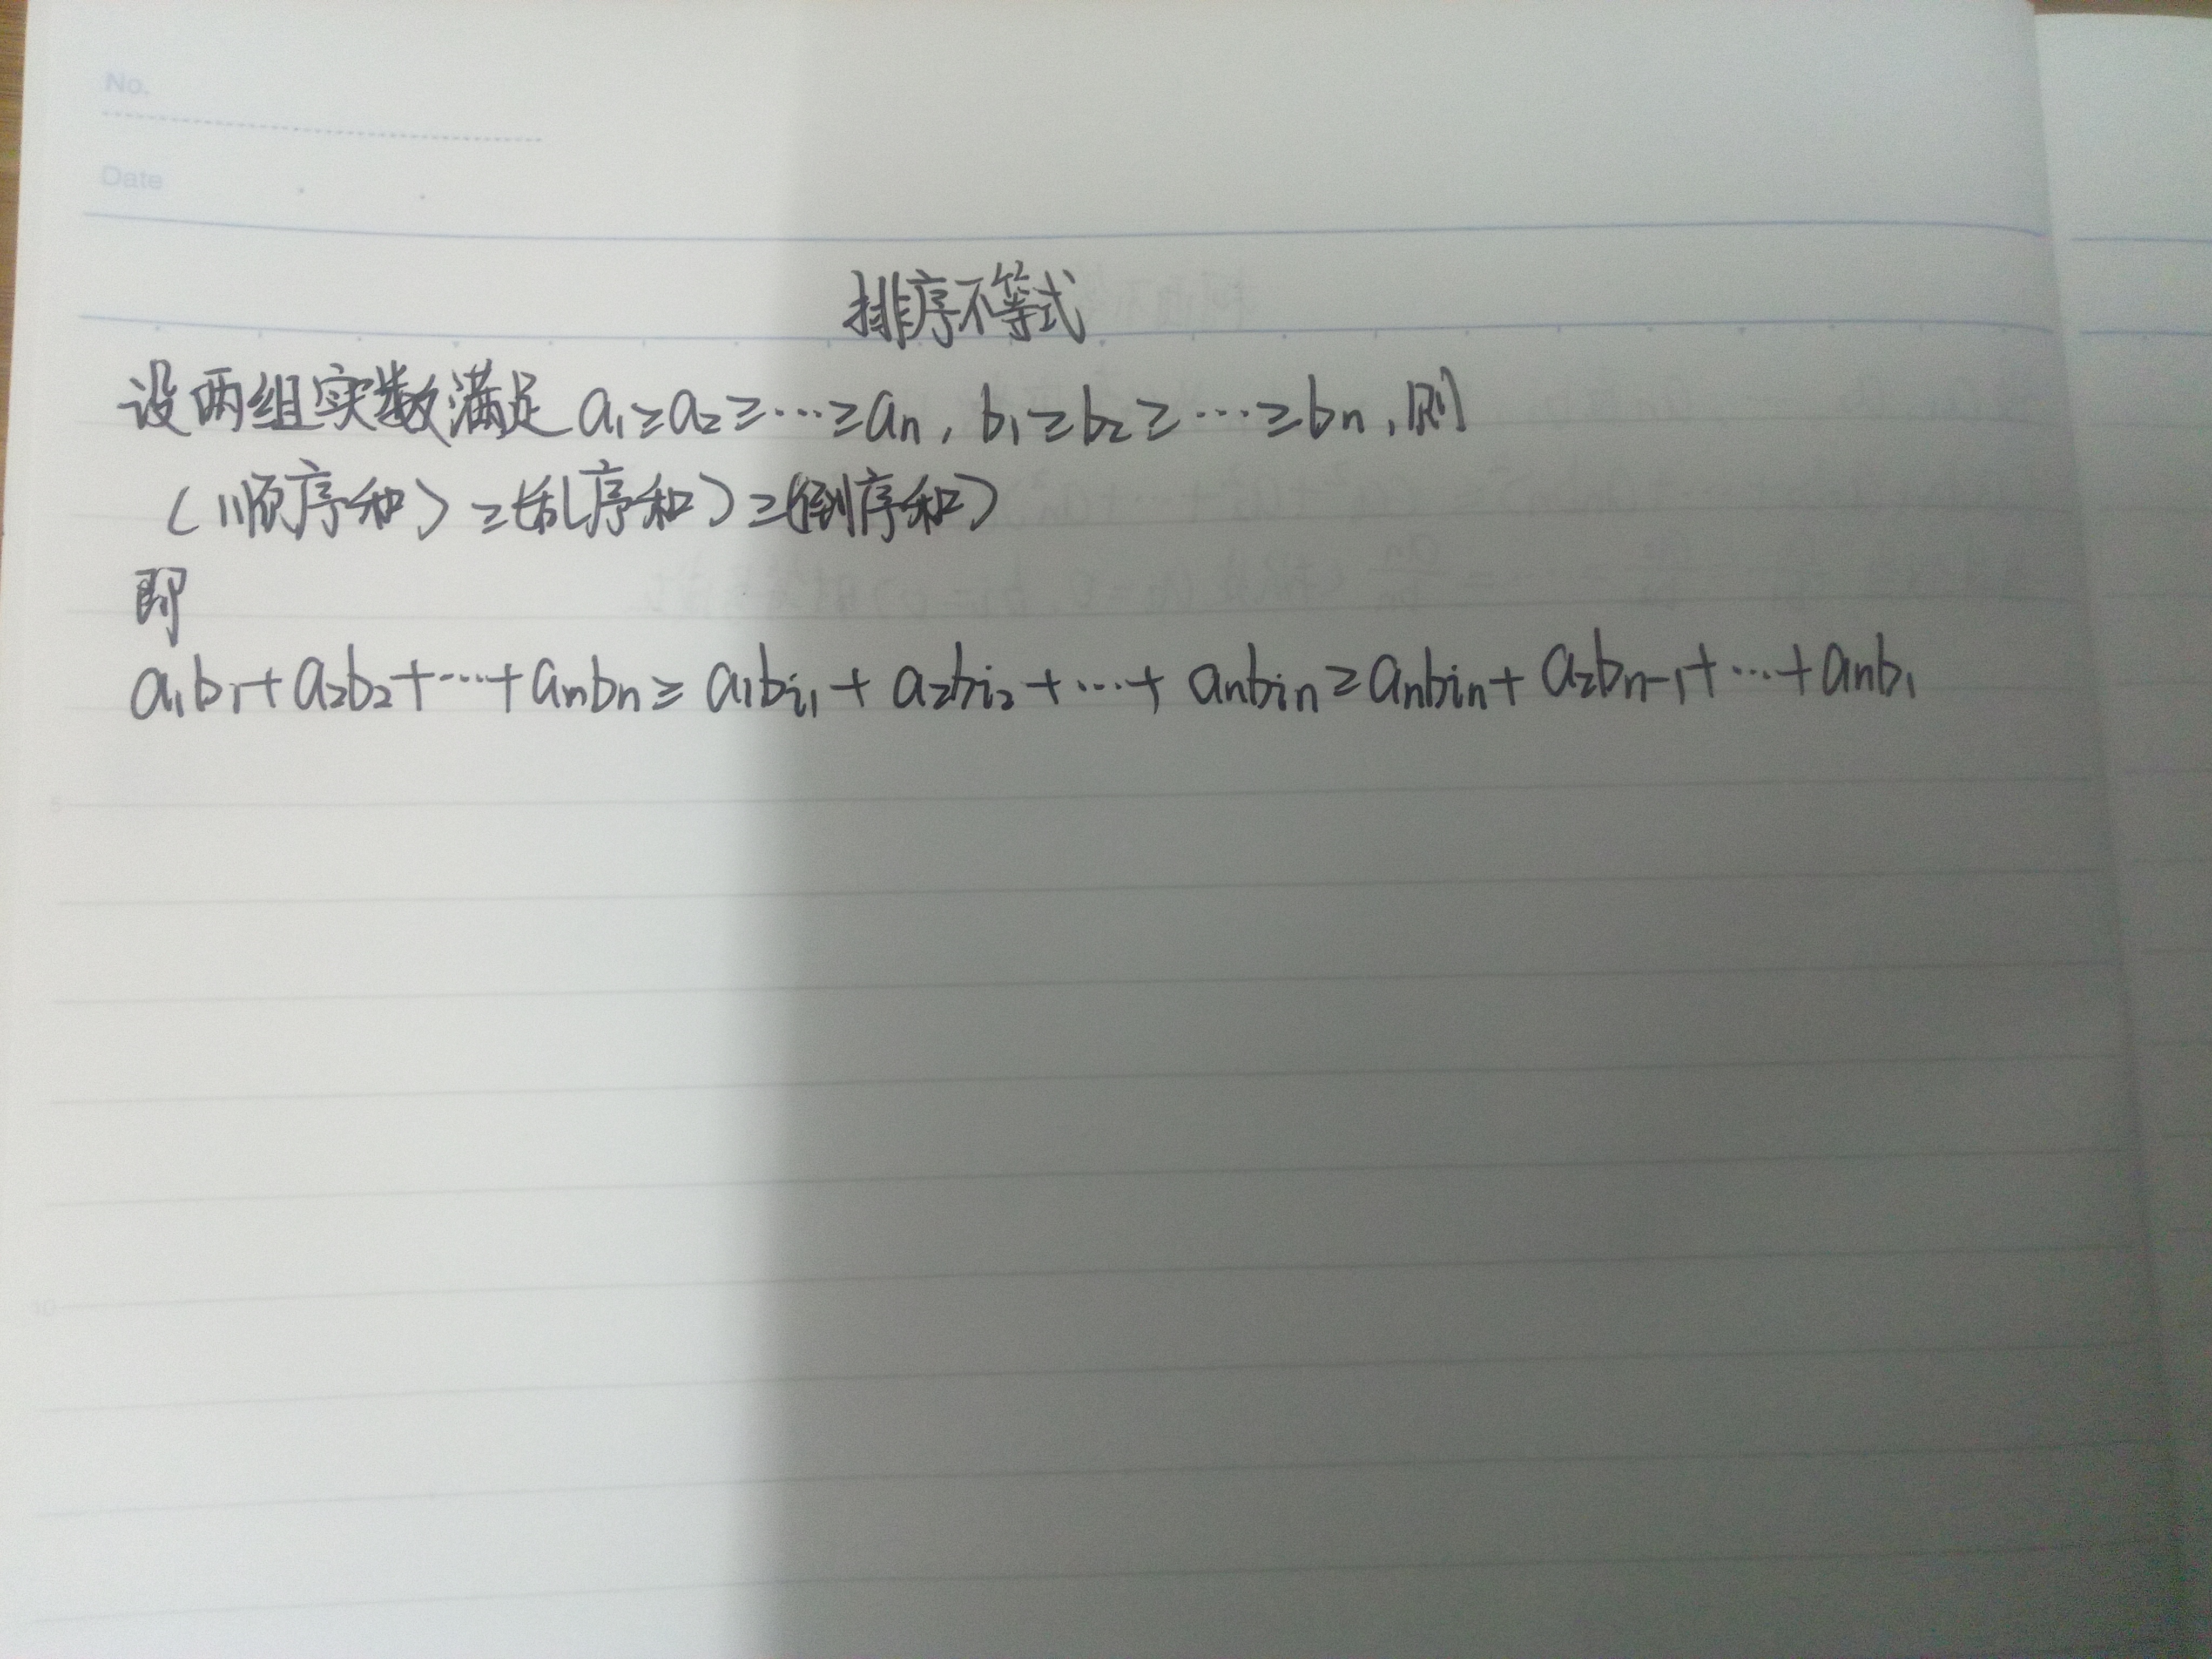 No.
Date
排序不等式
设两组实数满足 a₁≥a₂≥⋯≥aₙ, b₁≥b₂≥⋯≥bₙ,则
(顺序和)≥(乱序和)≥(倒序和)
即
a₁b₁+a₂b₂+⋯+aₙbₙ≥a₁bᵢ₁+a₂bᵢ₂+⋯+aₙbᵢₙ≥aₙbᵢₙ+a₂bₙ₋₁+⋯+aₙb₁
5
10